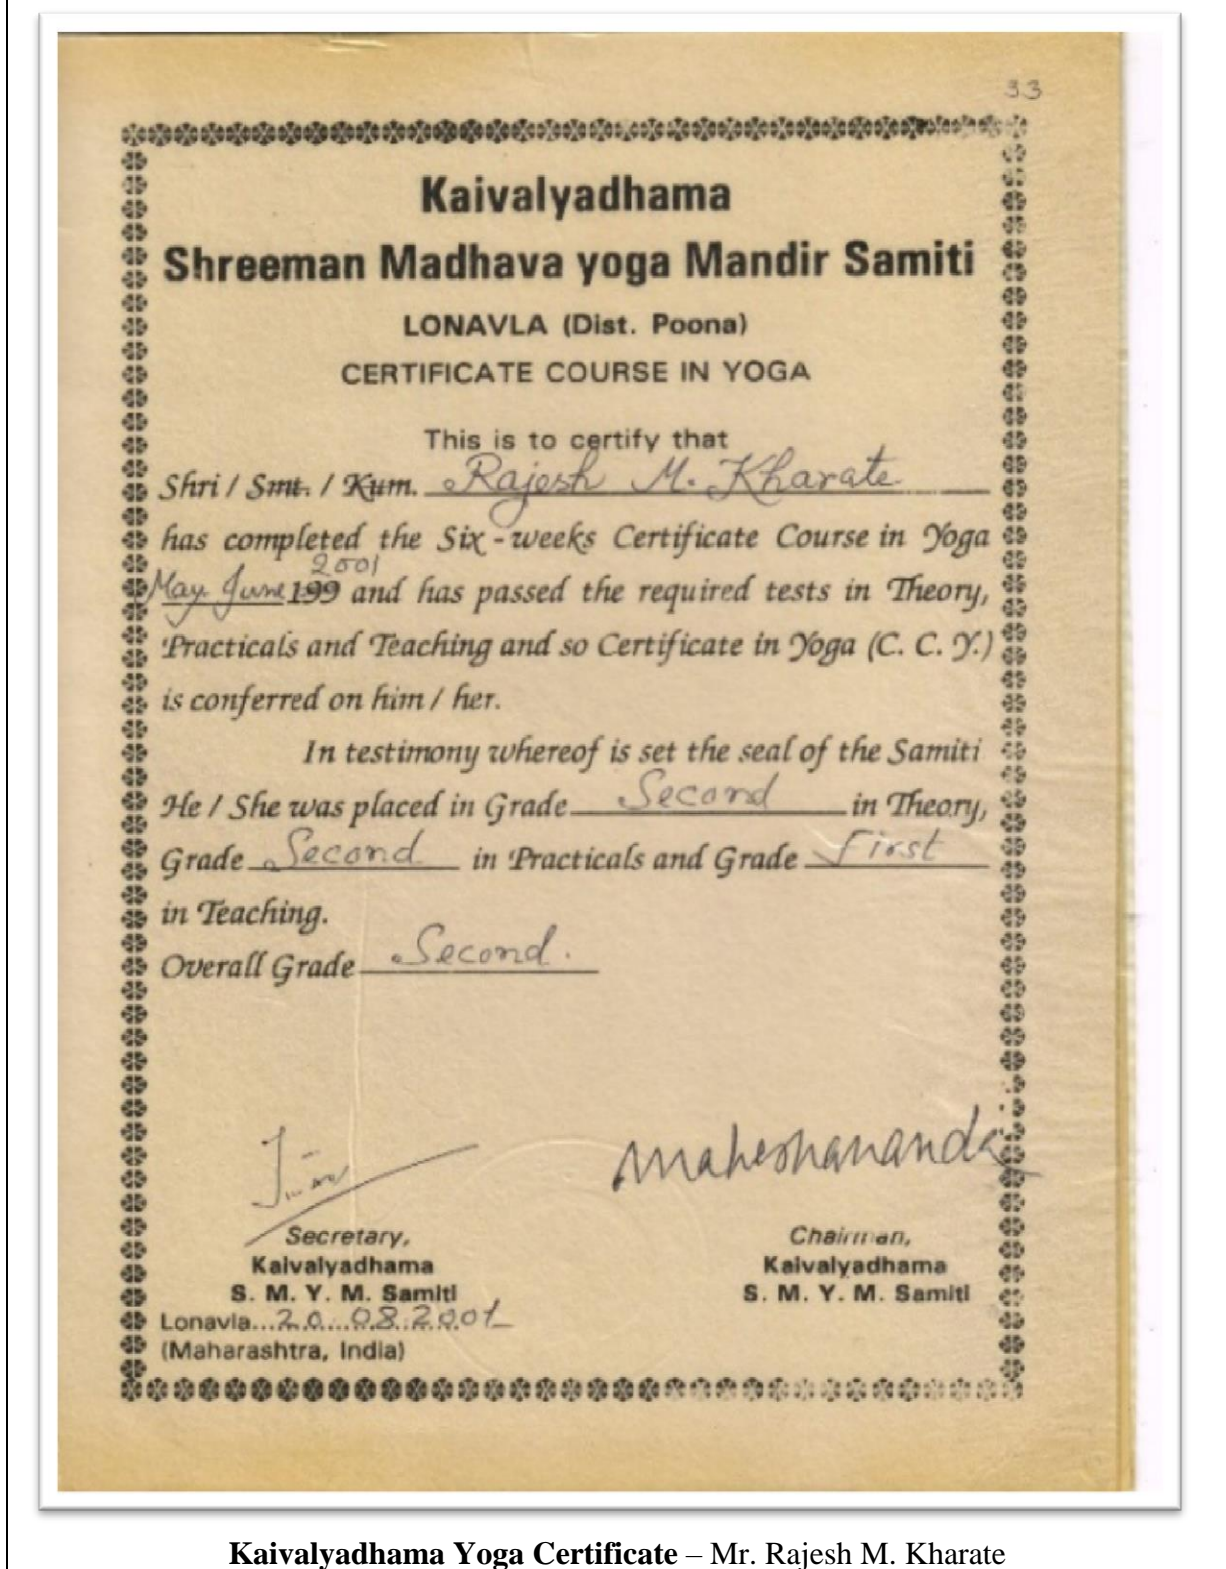 33
Kaivalyadhama
Shreeman Madhava yoga Mandir Samiti
LONAVLA (Dist. Poona)
CERTIFICATE COURSE IN YOGA
This is to certify that
Shri / Smt. / Kum. Rajesh M. Kharate
has completed the Six-weeks Certificate Course in Yoga
2001
May June 199 and has passed the required tests in Theory,
Practicals and Teaching and so Certificate in Yoga (C. C. Y.)
is conferred on him / her.
In testimony whereof is set the seal of the Samiti
He / She was placed in Grade Second in Theory,
Grade Second in Practicals and Grade First
in Teaching.
Overall Grade Second.
maheshananda
Secretary, Chairman,
Kaivalyadhama Kaivalyadhama
S. M. Y. M. Samiti S. M. Y. M. Samiti
Lonavla...20...08.2001
(Maharashtra, India)
Kaivalyadhama Yoga Certificate – Mr. Rajesh M. Kharate